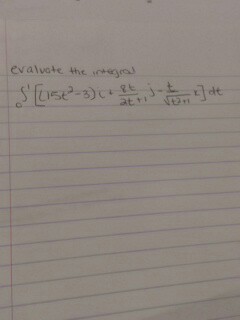 evaluate the integral
∫₀¹ [(15t²-3)i + 8t/2t+1 j - t/√t²+1 k] dt